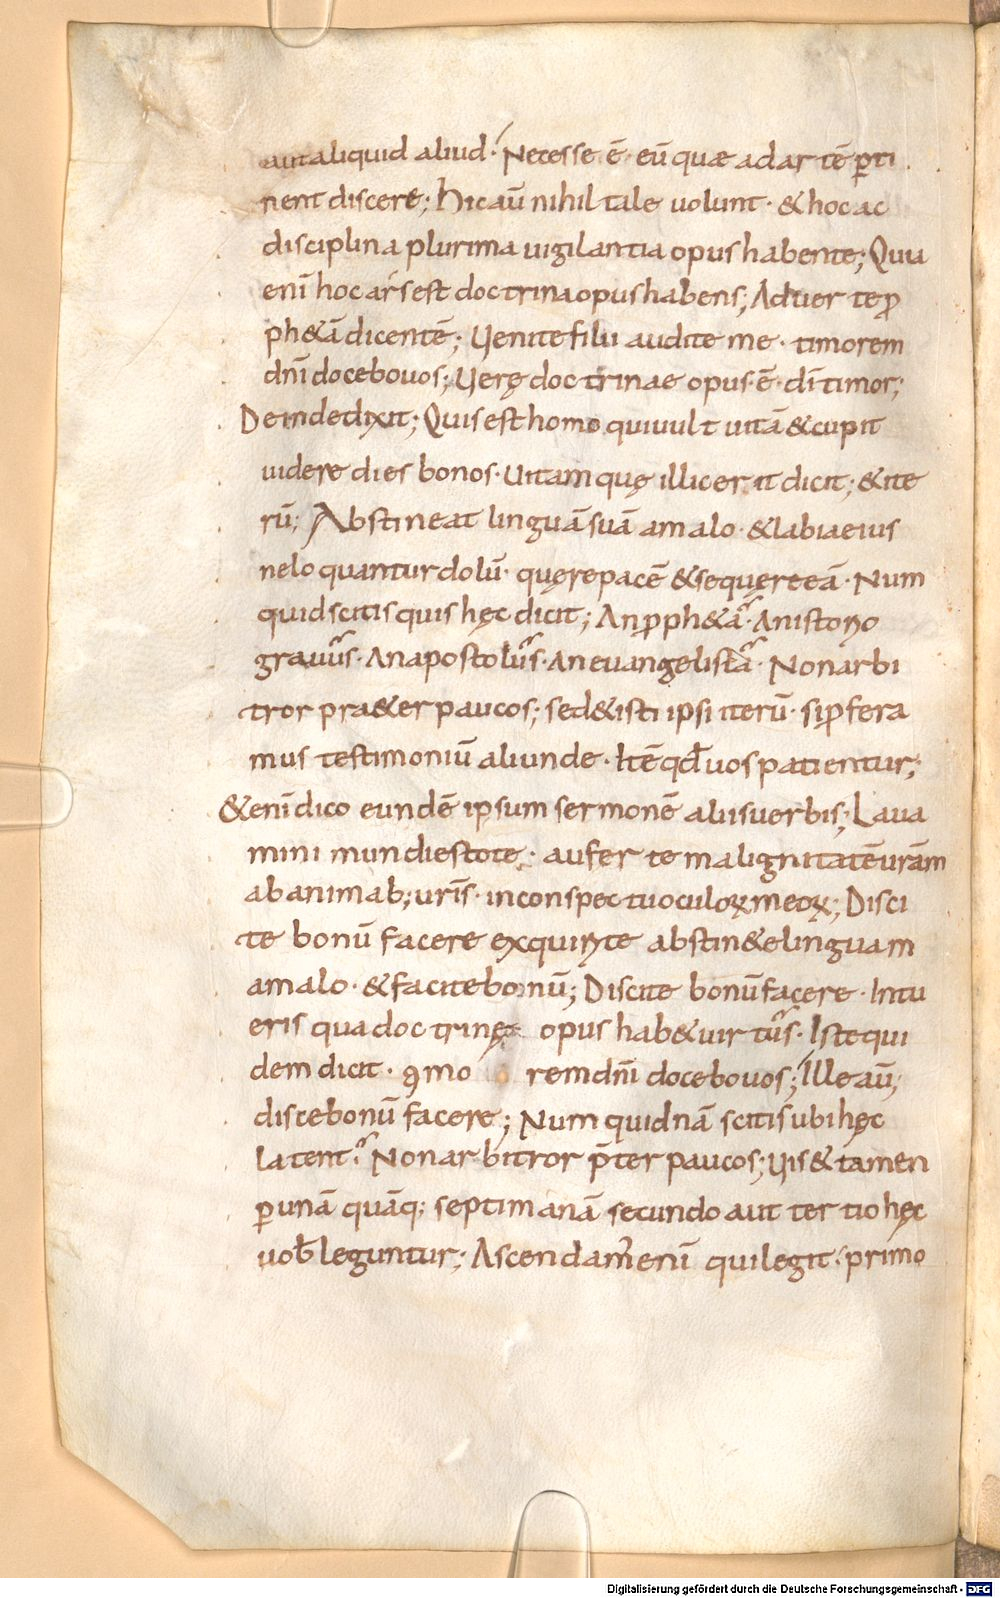 aut aliquid aliud· Necesse ē· eū quæ ad artē ꝑti
nent discere; Hic aū nihil tale uolunt· & hoc ac
disciplina plurima uigilantia opus habente; Quu
enī hoc ars est doctrina opus habens; Aduerte ꝓ
ph&ā dicentē; Uenite filii audite me· timorem
dnī docebo uos; Uerę doctrinae opus·ē· dī timor;
Deinde dixit; Quis est homo qui uult uitā & cupit
uidere dies bonos· Uitam quę illic erit dicit; & ite
rū; Abstineat linguā suā a malo· & labia eius
ne loquantur dolū· quęre pacē & sequere eā· Num
quid scitis quis hęc dicit; An ꝓph&a· An istorio
grauus· An apostolus· An euangelista· Non arbi
tror pra&er paucos; sed & isti ipsi iterū· si ꝓfera
mus testimoniū aliunde· Itē qđ uos patientur;
& enī dico eundē ipsum sermonē aliis uerbis; Laua
mini mundi estote· auferte malignitatē urām
ab animab; urīs· in conspectu oculoꝝ meoꝝ; Disci
te bonū facere exquirite abstin&e linguam
a malo· & facite bonū; Discite bonū facere· Intu
eris qua doctrinę opus hab& uirtus· Iste qui
dem dicit· qmo remdnī docebo uos; Ille aū;
disce bonū facere; Num quidnā scitis ubi hęc
latent· Non arbitror p̄ter paucos; Uis & tamen
ꝑ unā quāq; septimanā secundo aut tertio hęc
uob̄ leguntur; Ascendam̄ enī qui legit· primo
Digitalisierung gefördert durch die Deutsche Forschungsgemeinschaft - DFG